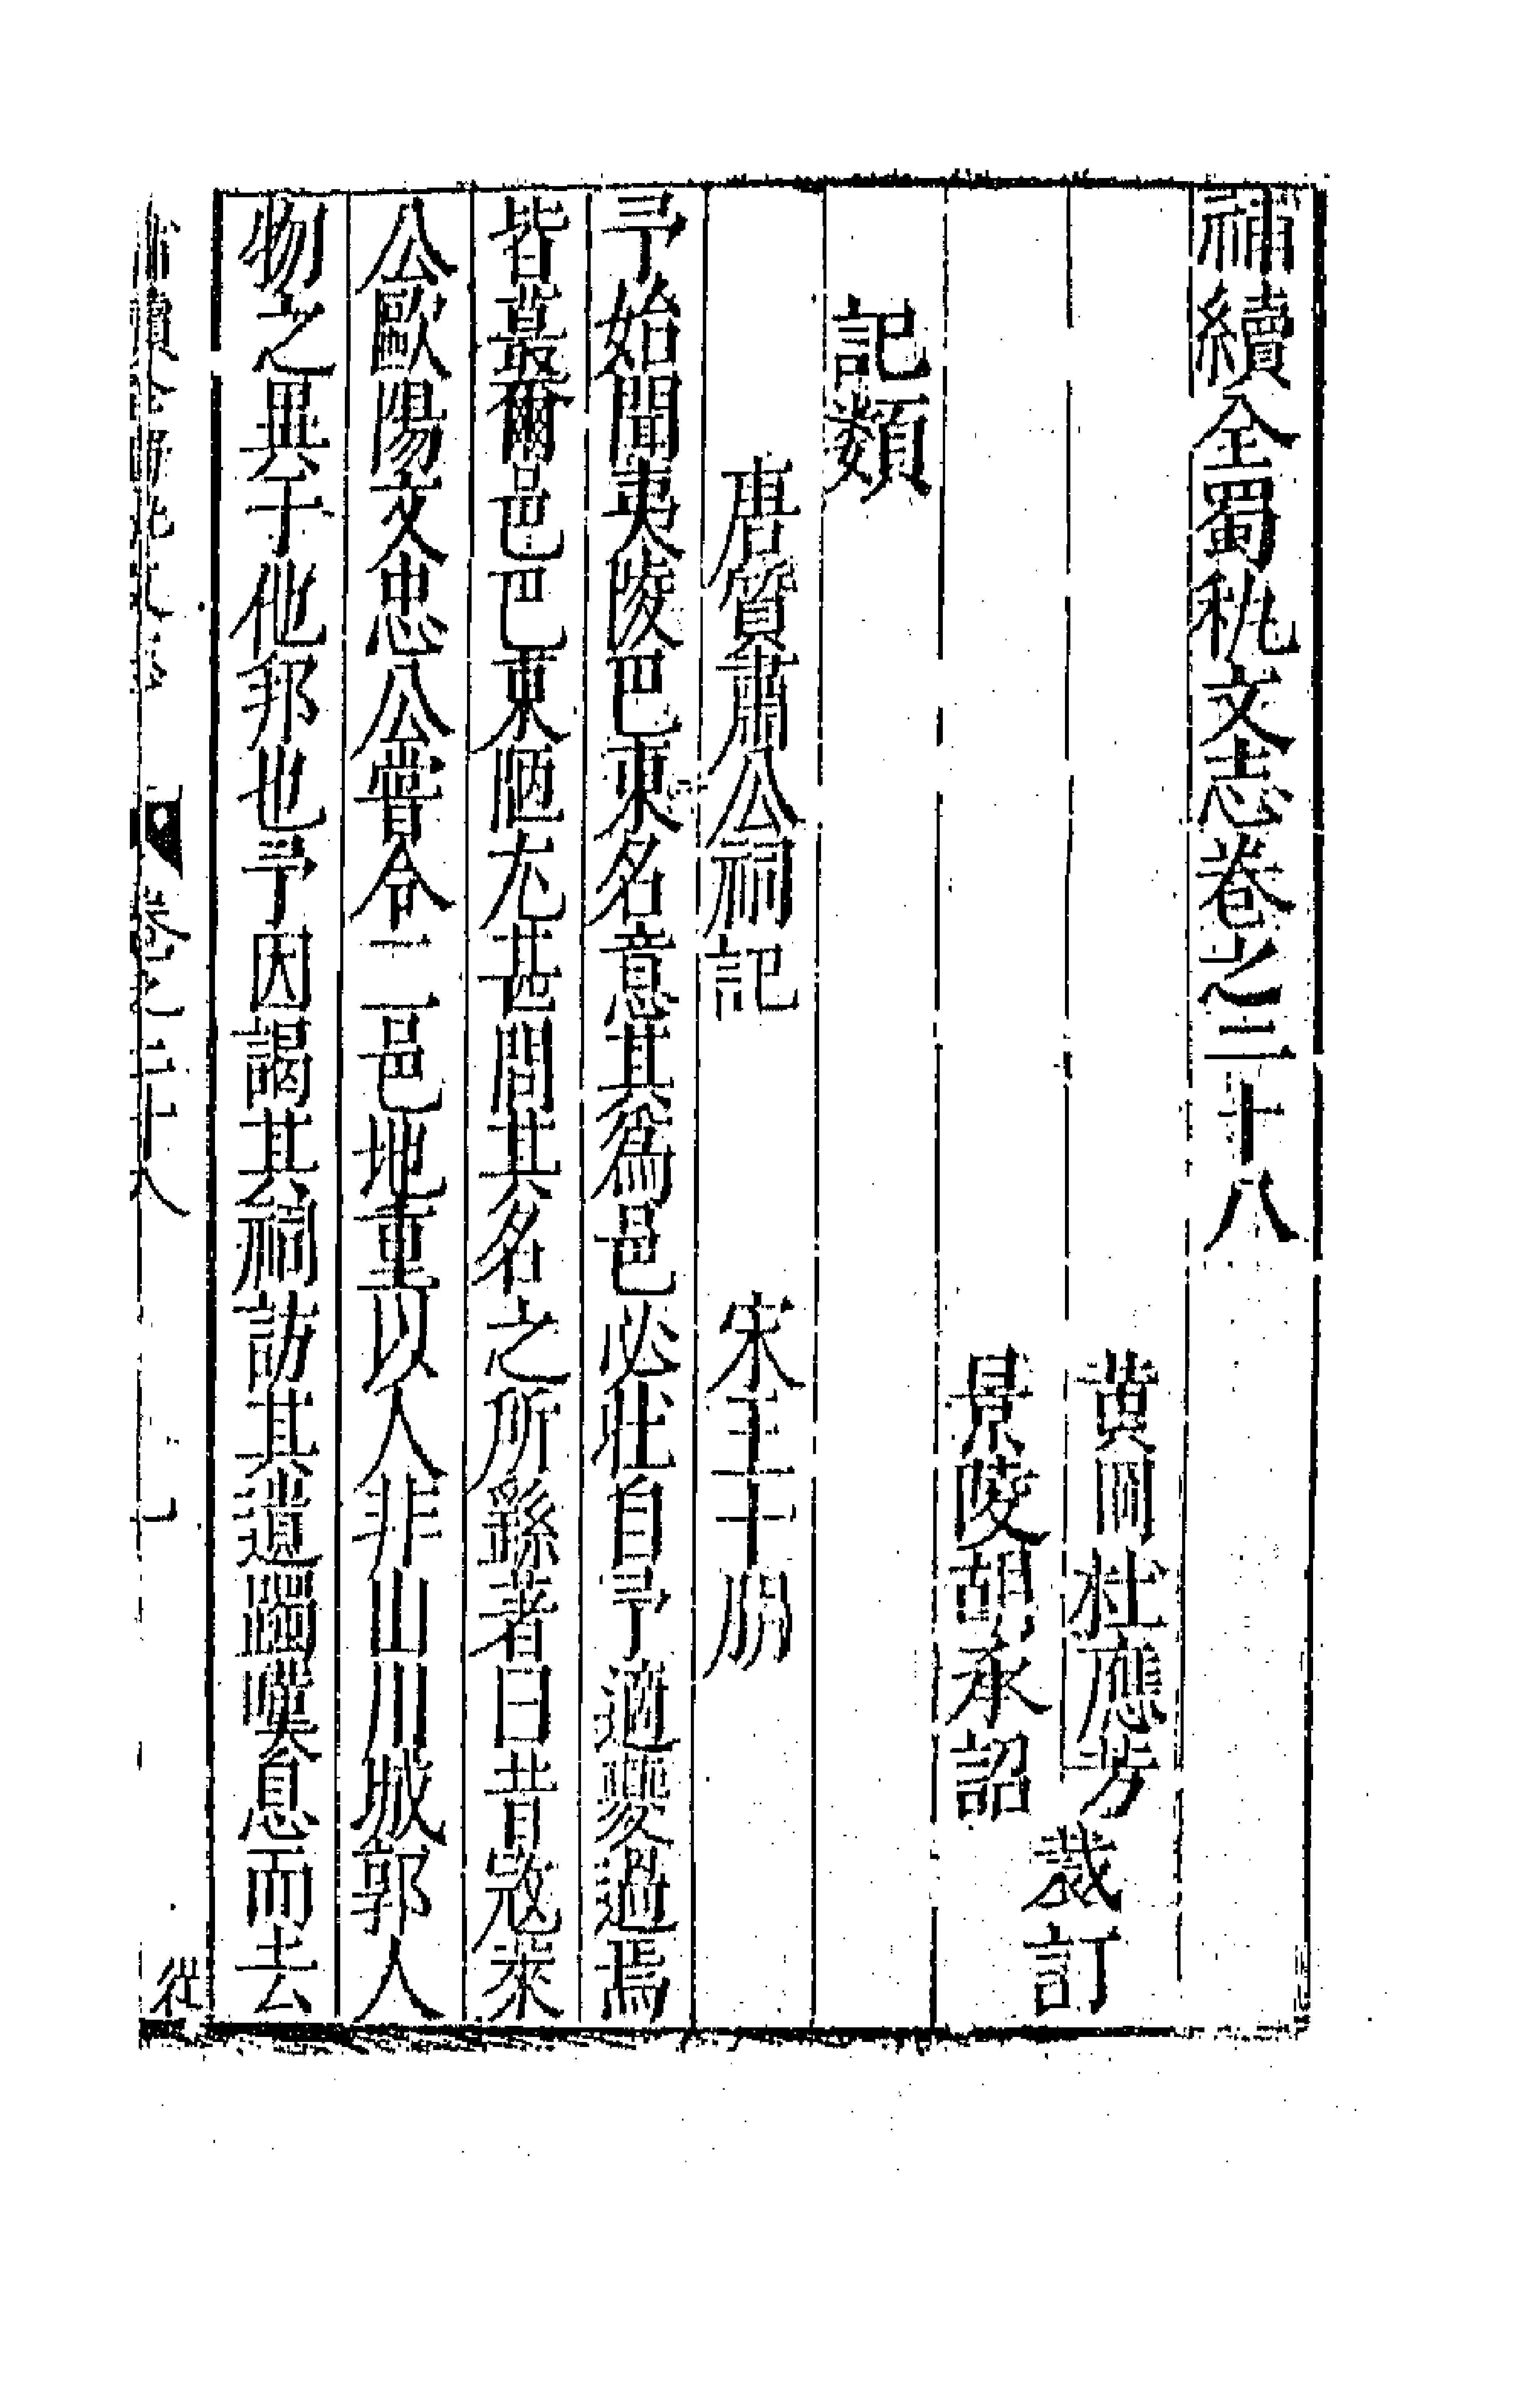 補續全蜀秇文志卷之三十八
黄岡杜應芳
景陵胡承詔
裁訂
記類
唐質肅公祠記 宋王十朋
予始聞夷陵巴東名意其爲邑必壯自予適夔過焉
皆蕞爾邑巴東陋尤甚問其名之所繇著曰昔寇萊
公歐陽文忠公嘗令二邑地重以人非山川城郭人
物之異于他邦也予因謁其祠訪其遺躅嘆息而去
卷之三十八
從